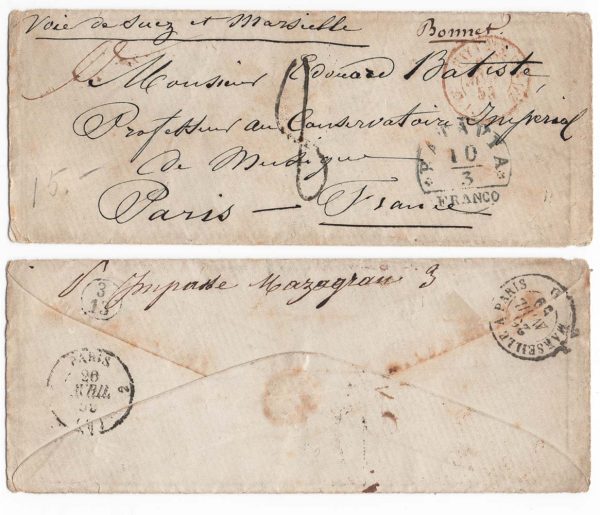 Voie de Suez et Marseille
Bonnet.
Monsieur Edouard Batiste,
Professeur au Conservatoire Impérial
de Musique
Paris — France
15.-
BATAVIA
10
3
FRANCO
3
13
Impasse Mazagran 3
MARSEILLE A PARIS
PARIS
20
AVRIL
2